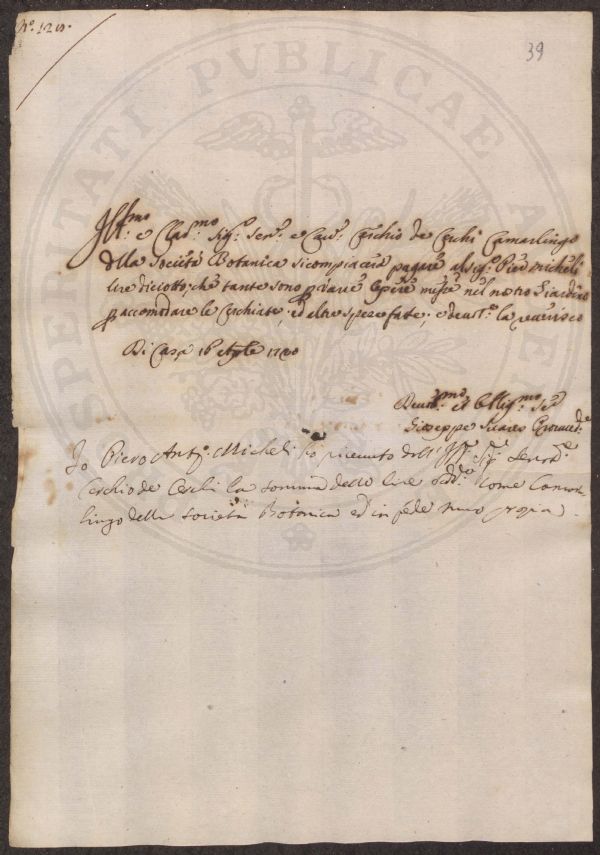 N.º 120.
39
PROSPERITATI PVBLICAE AVGENDAE
Ill.mo e Clar.mo Sig.r Sen.r e Cav.r Cerchio de Cerchi Camarlingo
della Società Botanica si compiaccia pagare al Sig.r Pier Micheli
lire diciotto che tante sono p varie opere messe nel nostro Giardino
p accomodare le Cerchiate, ed altre spese fatte, e devot.te la reverisco
Di Casa 16 Aprile 1720
Devot.mo et Obblig.mo Se.re
Giuseppe Suares
Io Piero Ant.º Micheli ho ricevuto dall' Ill.re Sig.re Senat.re
Cerchio de Cerchi la somma delle lire Sud.e come Camar
lingo della Società Botanica ed in fede mano propria